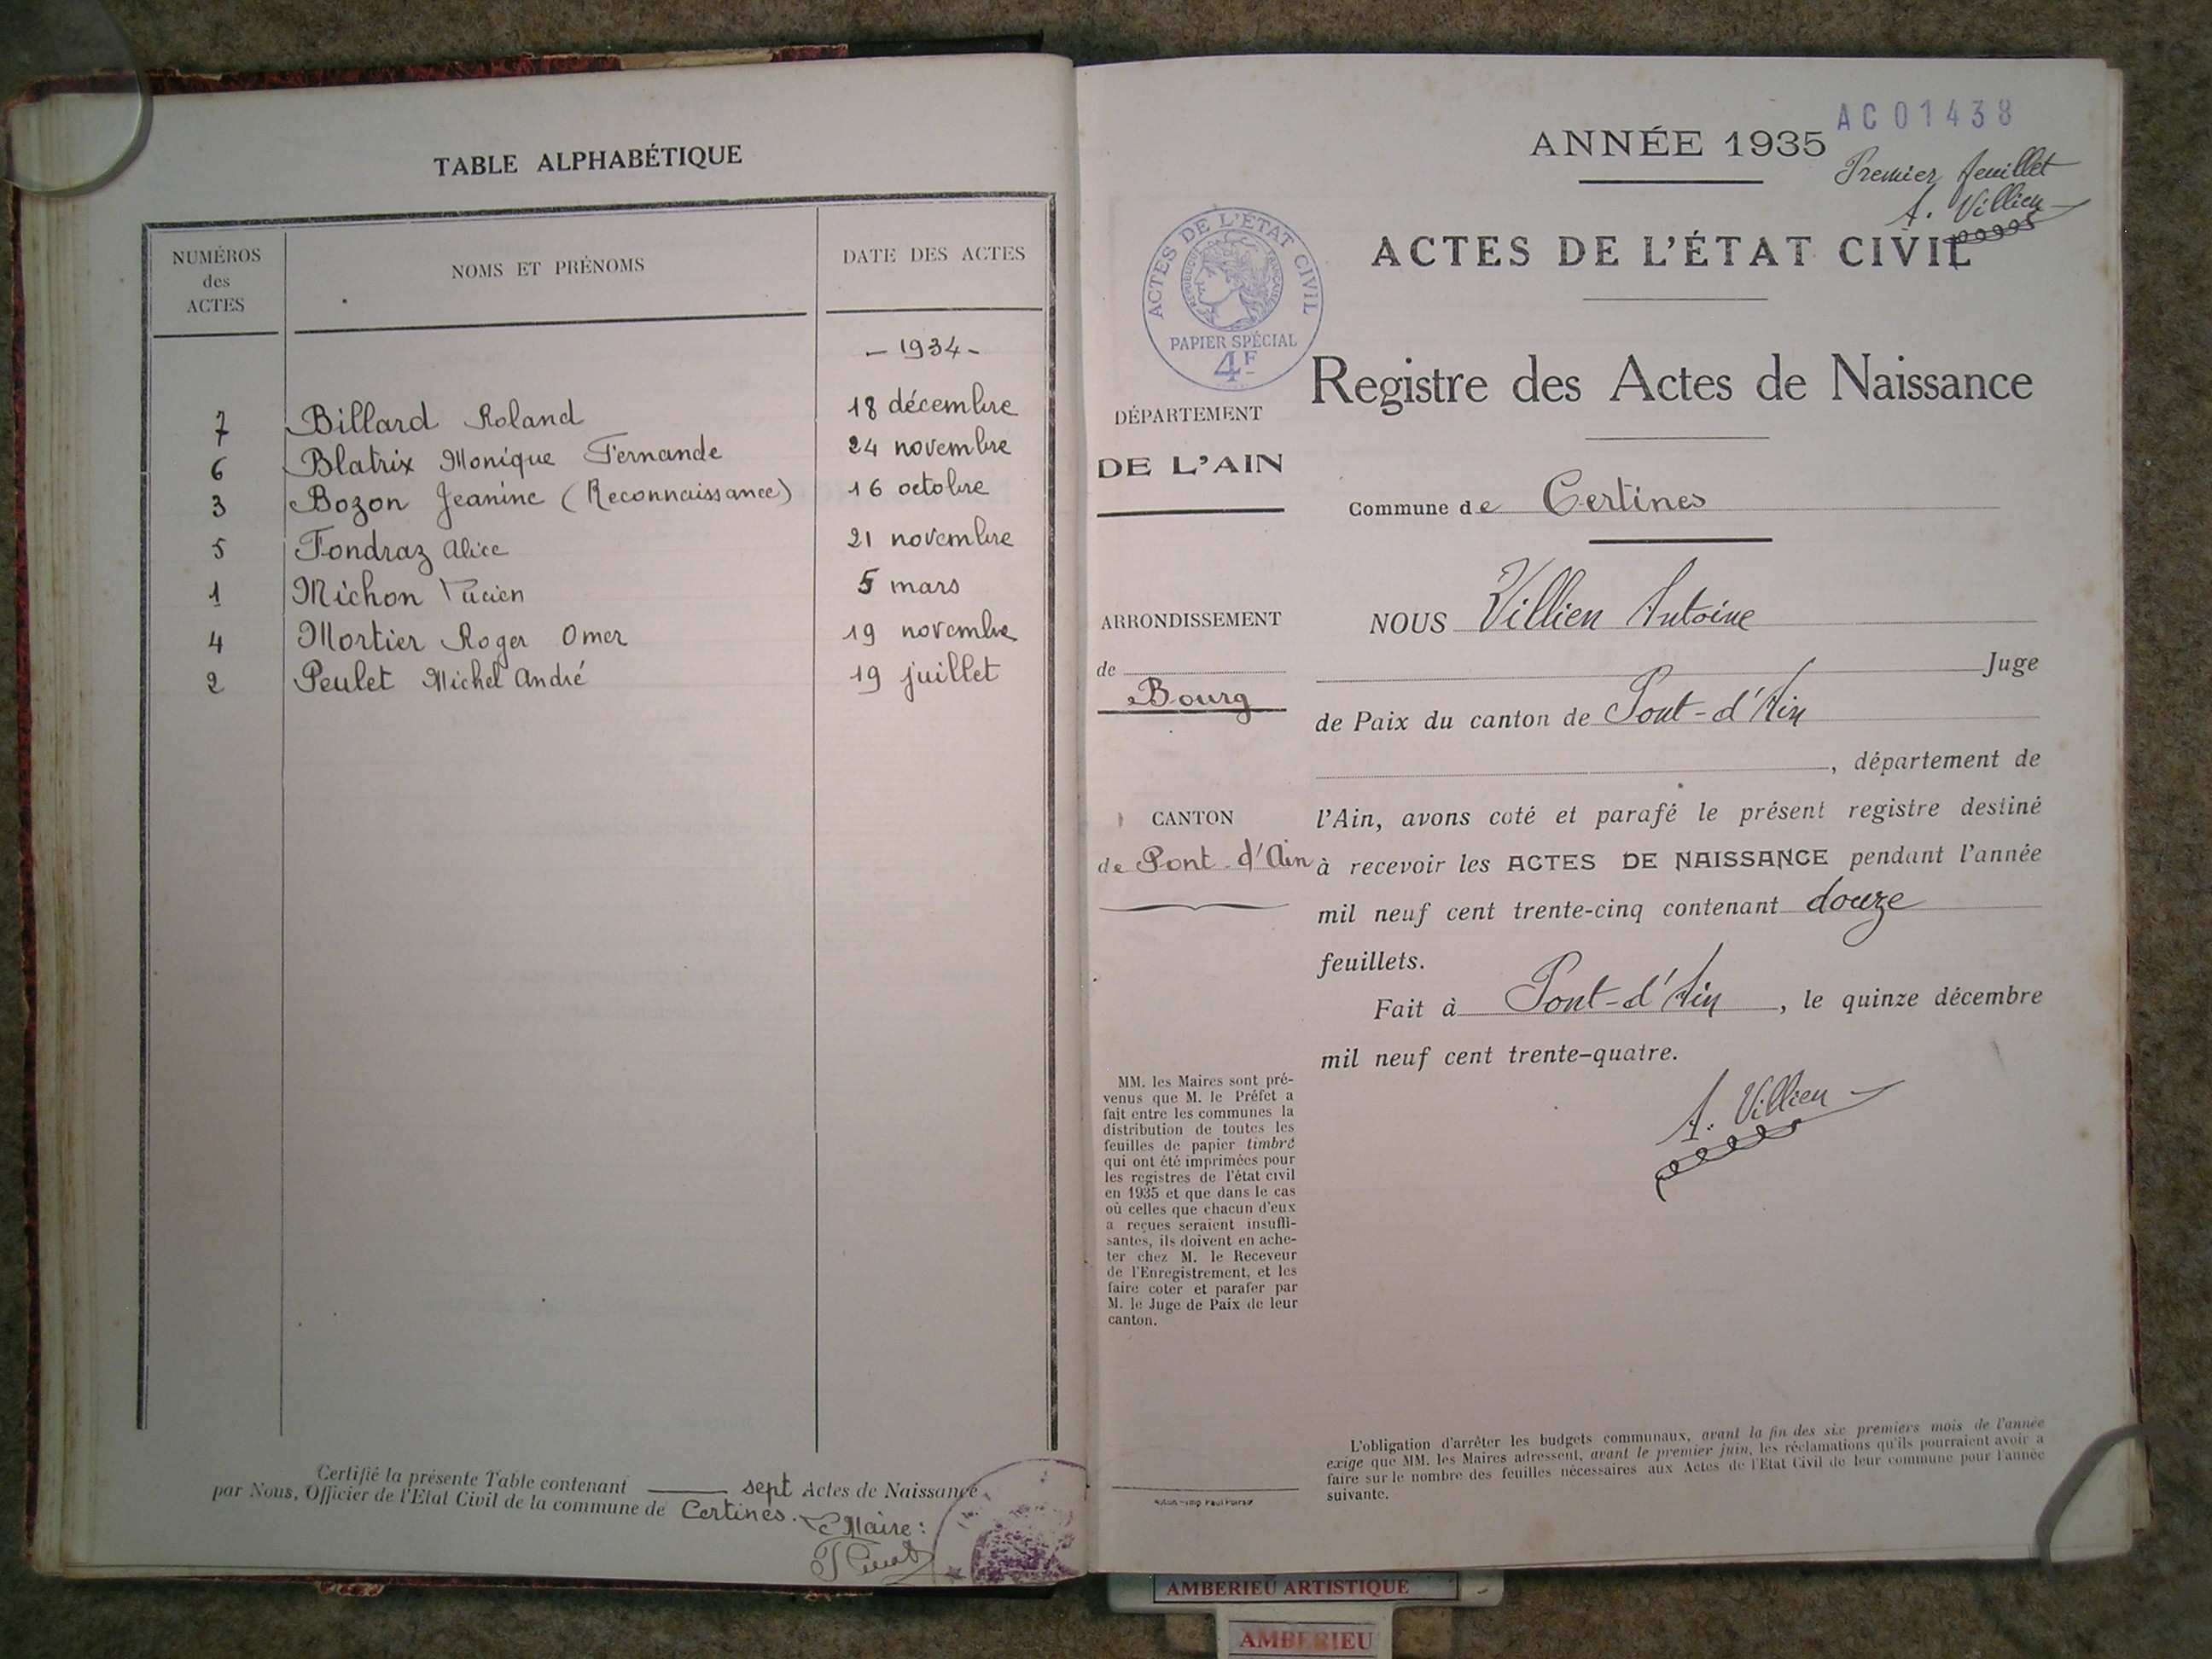 TABLE ALPHABÉTIQUE
NUMÉROS
des
ACTES
NOMS ET PRÉNOMS
DATE DES ACTES
- 1934 -
7 Billard Roland 18 décembre
6 Blatrix Monique Fernande 24 novembre
3 Bozon Jeanine (Reconnaissance) 16 octobre
5 Fondraz Alice 21 novembre
1 Michon Lucien 5 mars
4 Mortier Roger Omer 19 novembre
2 Peulet Michel André 19 juillet
Certifié la présente Table contenant sept Actes de Naissance
par Nous, Officier de l'Etat Civil de la commune de Certines. Le Maire:
AC01438
ANNÉE 1935
Premier feuillet
A. Villien
ACTES DE L'ÉTAT CIVIL
ACTES DE L'ÉTAT CIVIL
RÉPUBLIQUE FRANÇAISE
PAPIER SPÉCIAL
4F
Registre des Actes de Naissance
DÉPARTEMENT
DE L'AIN
Commune de Certines
ARRONDISSEMENT
de
Bourg
CANTON
de Pont-d'Ain
NOUS Villien Antoine
Juge
de Paix du canton de Pont-d'Ain
, département de
l'Ain, avons coté et parafé le présent registre destiné
à recevoir les ACTES DE NAISSANCE pendant l'année
mil neuf cent trente-cinq contenant douze
feuillets.
Fait à Pont-d'Ain, le quinze décembre
mil neuf cent trente-quatre.
A. Villien
MM. les Maires sont pré-
venus que M. le Préfet a
fait entre les communes la
distribution de toutes les
feuilles de papier timbré
qui ont été imprimées pour
les registres de l'état civil
en 1935 et que dans le cas
où celles que chacun d'eux
a reçues seraient insuffi-
santes, ils doivent en ache-
ter chez M. le Receveur
de l'Enregistrement, et les
faire coter et parafer par
M. le Juge de Paix de leur
canton.
L'obligation d'arrêter les budgets communaux, avant la fin des six premiers mois de l'année
exige que MM. les Maires adressent, avant le premier juin, les réclamations qu'ils pourraient avoir a
faire sur le nombre des feuilles nécessaires aux Actes de l'Etat Civil de leur commune pour l'année
suivante.
AMBERIEU ARTISTIQUE
AMBERIEU